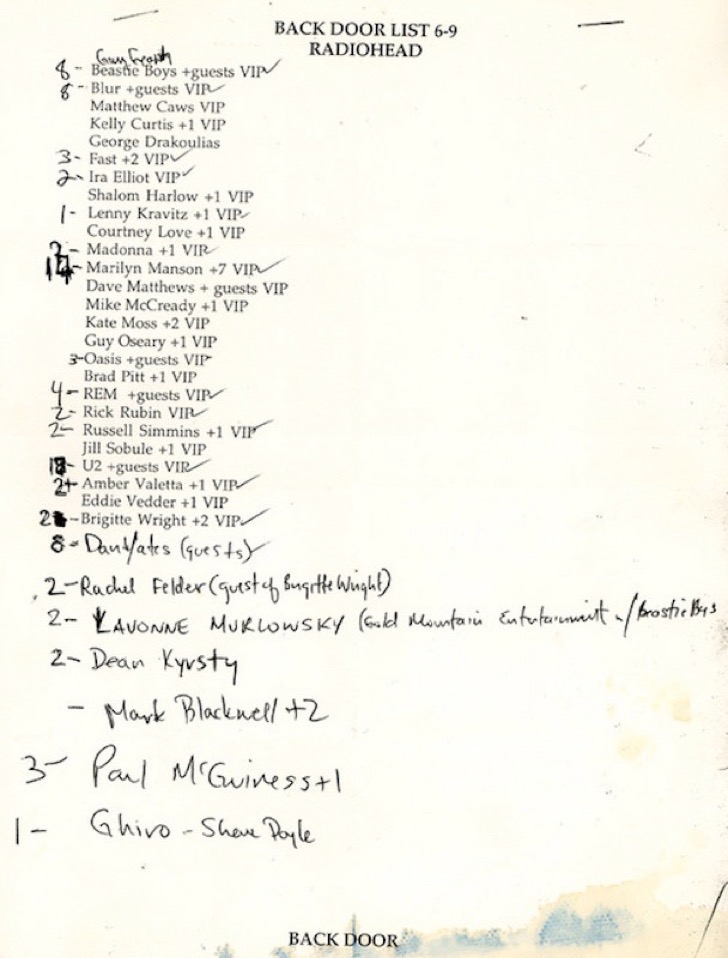 BACK DOOR LIST 6-9
RADIOHEAD
8 - Beastie Boys +guests VIP ✓
8 - Blur +guests VIP ✓
Matthew Caws VIP
Kelly Curtis +1 VIP
George Drakoulias
3- Fast +2 VIP ✓
2- Ira Elliot VIP ✓
Shalom Harlow +1 VIP
1- Lenny Kravitz +1 VIP ✓
Courtney Love +1 VIP
2- Madonna +1 VIP ✓
- Marilyn Manson +7 VIP ✓
Dave Matthews + guests VIP
Mike McCready +1 VIP
Kate Moss +2 VIP
Guy Oseary +1 VIP
3- Oasis +guests VIP
Brad Pitt +1 VIP
4- REM +guests VIP ✓
2- Rick Rubin VIP ✓
2- Russell Simmins +1 VIP ✓
Jill Sobule +1 VIP
- U2 +guests VIP ✓
2+ Amber Valetta +1 VIP ✓
Eddie Vedder +1 VIP
2 - Brigitte Wright +2 VIP ✓
8- (guests) ✓
2- Rachel Felder (guest of Brigitte Wright)
2- LAVONNE MURLOWSKY (Gold Mountain Entertainment w/ Beastie Boys
2- Dean Kyrsty
- Mark Blackwell +2
3- Paul McGuiness +1
1- Ghiro - Shane Doyle
BACK DOOR